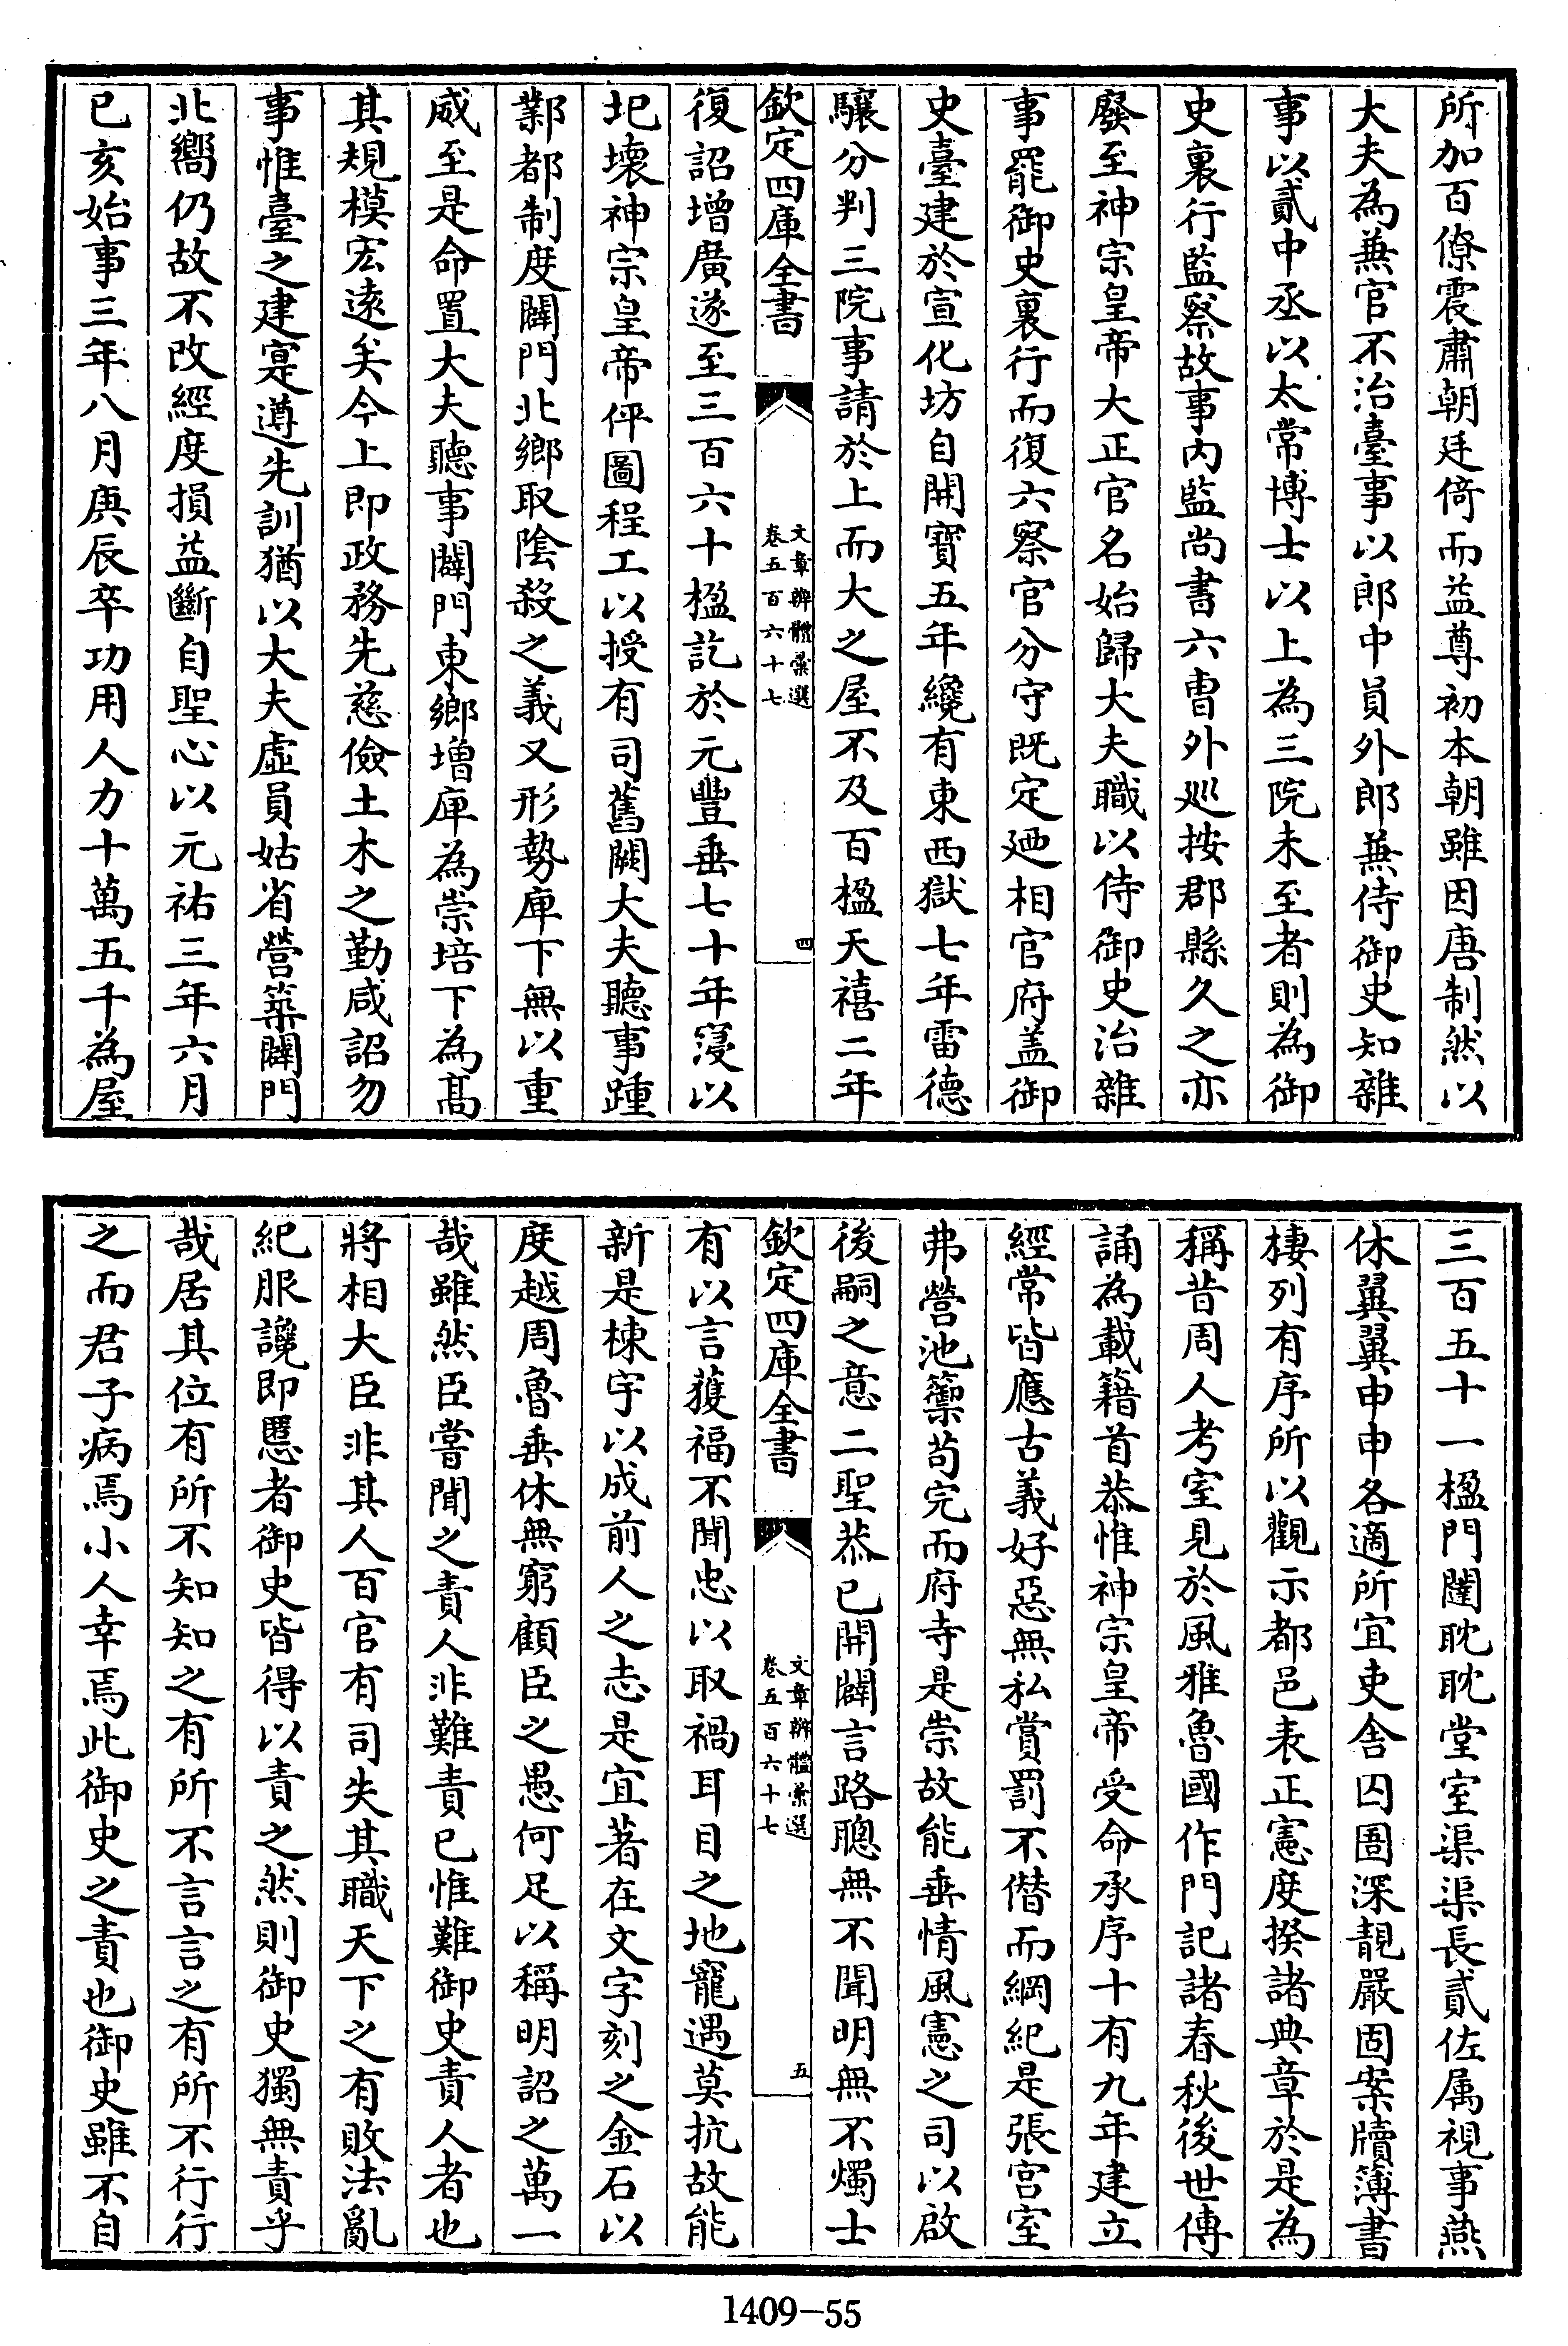 所加百僚震肅朝廷倚而益尊初本朝雖因唐制然以
大夫為兼官不治臺事以郎中員外郎兼侍御史知雜
事以貳中丞以太常博士以上為三院未至者則為御
史裏行監察故事內監尚書六曹外廵按郡縣久之亦
廢至神宗皇帝大正官名始歸大夫職以侍御史治雜
事罷御史裏行而復六察官分守既定廼相官府盖御
史臺建於宣化坊自開寳五年纔有東西獄七年雷德
驤分判三院事請於上而大之屋不及百楹天禧二年
欽定四庫全書
文章辨體彙選
卷五百六十七
四
復詔增廣遂至三百六十楹訖於元豐垂七十年寖以
圮壞神宗皇帝伻圖程工以授有司舊闕大夫聽事踵
鄴都制度闢門北鄉取陰殺之義又形勢庳下無以重
威至是命置大夫聽事闢門東鄉增庳為崇培下為髙
其規模宏逺矣今上即政務先慈儉土木之勤咸詔勿
事惟臺之建寔遵先訓猶以大夫虛員姑省營築闢門
北嚮仍故不改經度損益斷自聖心以元祐三年六月
已亥始事三年八月庚辰卒功用人力十萬五千為屋
三百五十一楹門闥耽耽堂室渠渠長貳佐属視事燕
休翼翼申申各適所宜吏舍囚圄深靚嚴固案牘簿書
棲列有序所以觀示都邑表正憲度揆諸典章於是為
稱昔周人考室見於風雅魯國作門記諸春秋後世傳
誦為載籍首恭惟神宗皇帝受命承序十有九年建立
經常皆應古義好惡無私賞罰不僭而綱紀是張宮室
弗營池籞苟完而府寺是崇故能垂情風憲之司以啟
後嗣之意二聖恭已開闢言路聰無不聞明無不燭士
欽定四庫全書
文章辨體彙選
卷五百六十七
五
有以言獲福不聞忠以取禍耳目之地寵遇莫抗故能
新是棟宇以成前人之志是宜著在文字刻之金石以
度越周魯垂休無窮顧臣之愚何足以稱明詔之萬一
哉雖然臣嘗聞之責人非難責已惟難御史責人者也
將相大臣非其人百官有司失其職天下之有敗法亂
紀服讒即慝者御史皆得以責之然則御史獨無責乎
哉居其位有所不知知之有所不言言之有所不行行
之而君子病焉小人幸焉此御史之責也御史雖不自
1409-55